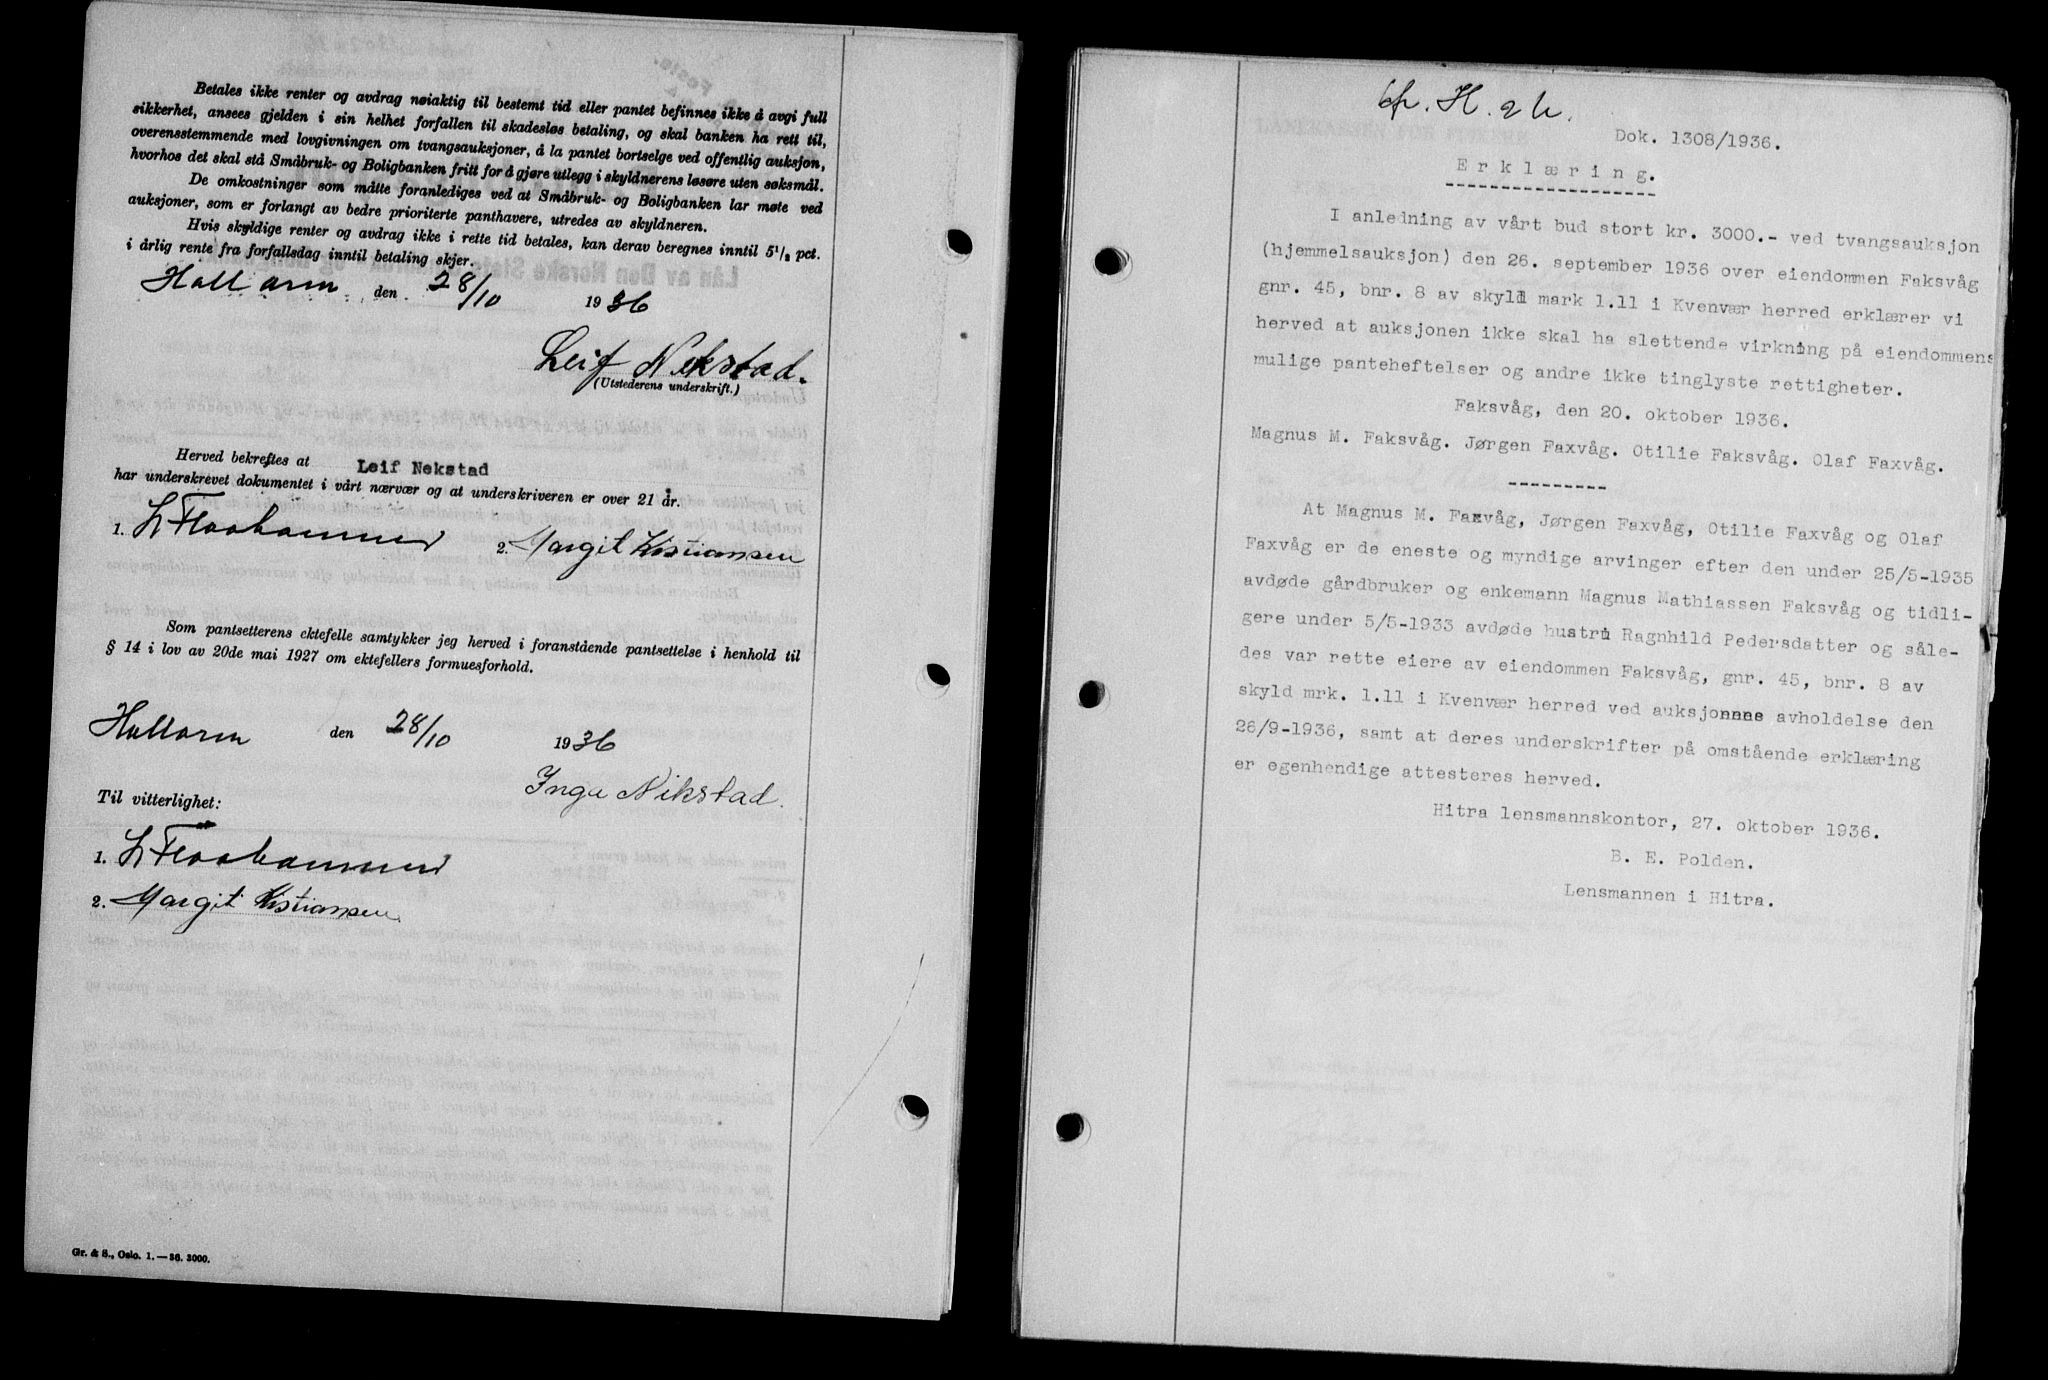 Betales ikke renter og avdrag nøiaktig til bestemt tid eller pantet befinnes ikke å avgi full
sikkerhet, ansees gjelden i sin helhet forfallen til skadesløs betaling, og skal banken ha rett til,
overensstemmende med lovgivningen om tvangsauksjoner, å la pantet bortselge ved offentlig auksjon,
hvorhos det skal stå Småbruk- og Boligbanken fritt for å gjøre utlegg i skyldnerens løsøre uten søksmål.
De omkostninger som måtte foranlediges ved at Småbruk- og Boligbanken lar møte ved
auksjoner, som er forlangt av bedre prioriterte panthavere, utredes av skyldneren.
Hvis skyldige renter og avdrag ikke i rette tid betales, kan derav beregnes inntil 5 1/2 pct.
i årlig rente fra forfallsdag inntil betaling skjer.
den 28/10 1936
Leif Nekstad.
(Utstederens underskrift.)
Herved bekreftes at Leif Nekstad
har underskrevet dokumentet i vårt nærvær og at underskriveren er over 21 år.
1. 2. Margit Kristiansen
Som pantsetterens ektefelle samtykker jeg herved i foranstående pantsettelse i henhold til
§ 14 i lov av 20de mai 1927 om ektefellers formuesforhold.
den 28/10 1936
Inga Nikstad.
Til vitterlighet:
1.
2. Margit Kristiansen
Gr. & S., Oslo. 1.—36. 3000.
Dok. 1308/1936.
Erklæring.
I anledning av vårt bud stort kr. 3000.- ved tvangsauksjon
(hjemmelsauksjon) den 26. september 1936 over eiendommen Faksvåg
gnr. 45, bnr. 8 av skyld mark 1.11 i Kvenvær herred erklærer vi
herved at auksjonen ikke skal ha slettende virkning på eiendommens
mulige panteheftelser og andre ikke tinglyste rettigheter.
Faksvåg, den 20. oktober 1936.
Magnus M. Faksvåg. Jørgen Faxvåg. Otilie Faksvåg. Olaf Faxvåg.
At Magnus M. Faxvåg, Jørgen Faxvåg, Otilie Faxvåg og Olaf
Faxvåg er de eneste og myndige arvinger efter den under 25/5-1935
avdøde gårdbruker og enkemann Magnus Mathiassen Faksvåg og tidli-
gere under 5/5-1933 avdøde hustru Ragnhild Pedersdatter og såle-
des var rette eiere av eiendommen Faksvåg, gnr. 45, bnr. 8 av
skyld mrk. 1.11 i Kvenvær herred ved auksjonens avholdelse den
26/9-1936, samt at deres underskrifter på omstående erklæring
er egenhendige attesteres herved.
Hitra lensmannskontor, 27. oktober 1936.
B. E. Polden.
Lensmannen i Hitra.